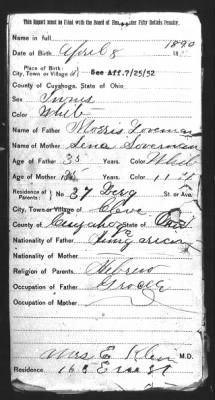 This report must be filed with the Board of Health under Fifty Dollars Penalty.
Name in full
1890
Date of Birth April 8 18
Place of Birth:
City, Town or Village of) See Aff. 7/25/52
County of Cuyahoga, State of Ohio.
Sex Twins
Color White
Name of Father Morris
Name of Mother Lena
Age of Father 35 Years. Color White
Age of Mother 35 Years. Color " "
Residence of Parents: } No. 37 Berg St. or Ave.
City, Town or Village of Cleve
County of Cuyahoga Ohio
Nationality of Father Hungarian
Nationality of Mother
Religion of Parents Hebrew
Occupation of Father Grocer
Occupation of Mother
Mrs E. Klein M.D.
Residence 168 E